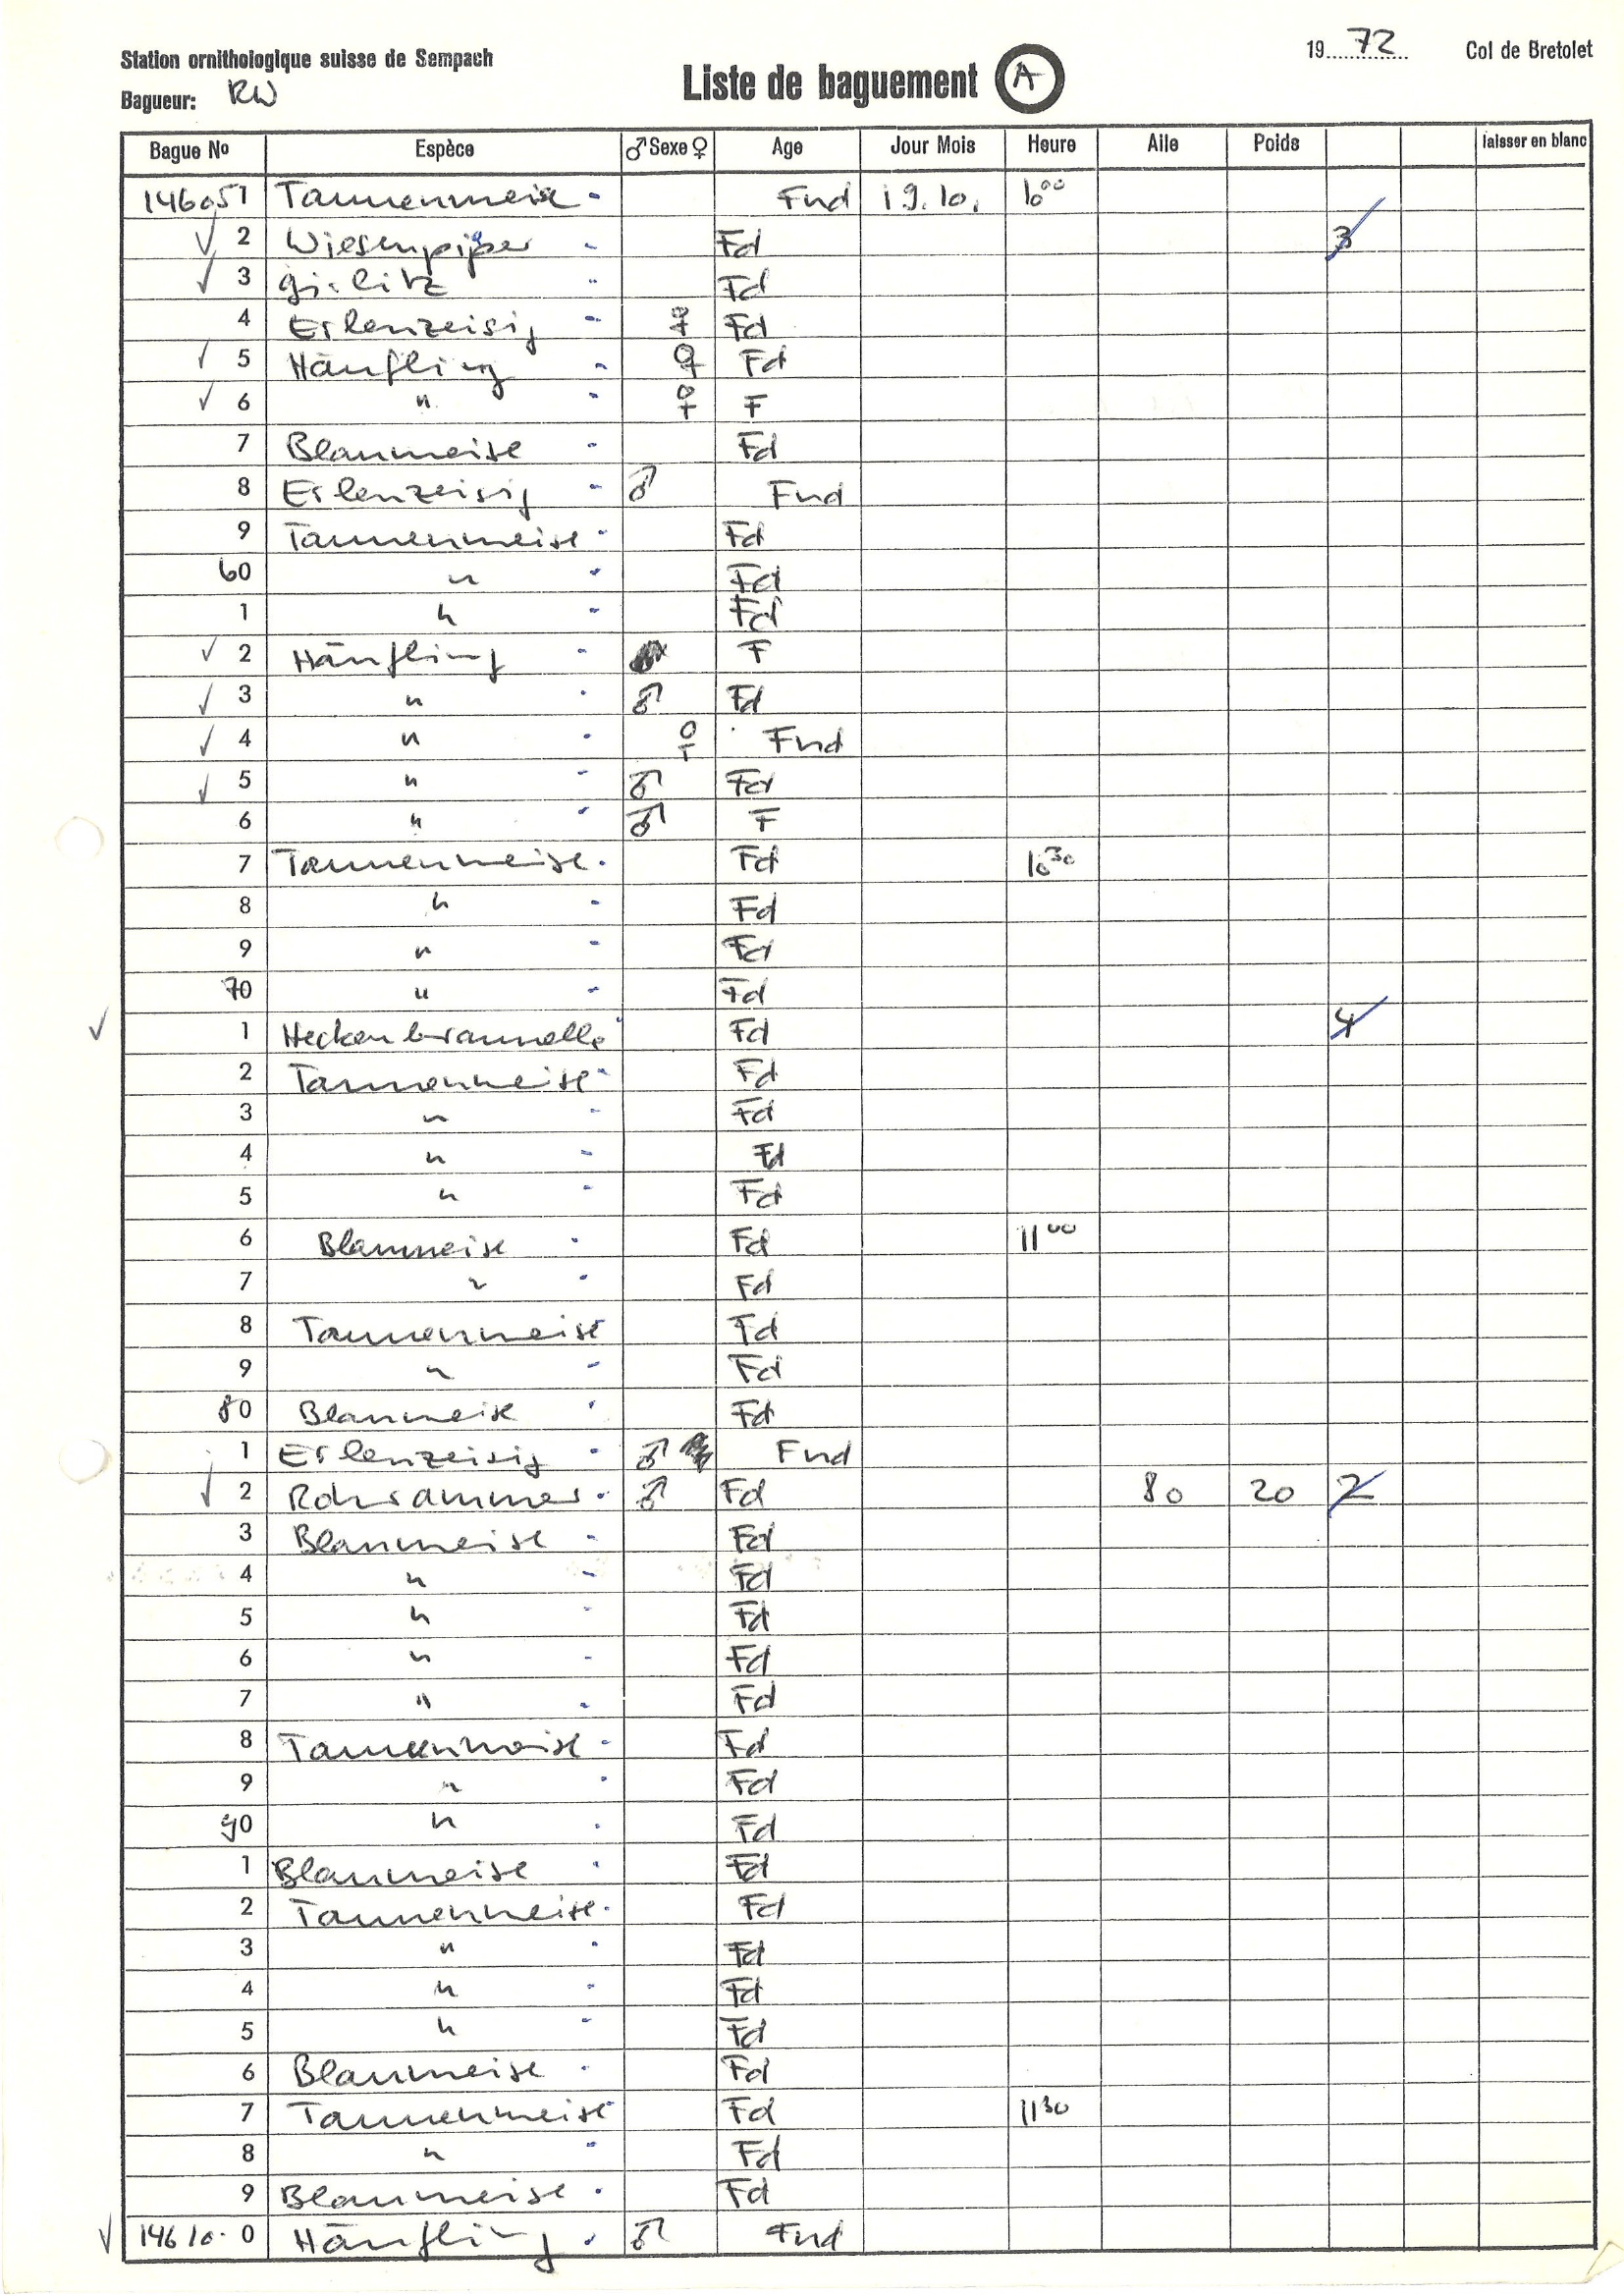 Station ornithologique suisse de Sempach
19 72 Col de Bretolet
Bagueur: RW
Liste de baguement A
Bague Nº Espèce ♂ Sexe ♀ Age Jour Mois Heure Aile Poids laisser en blanc
146051 Tannenmeise - Fnd 19.10. 10⁰⁰
✓ 2 Wiesenpiper - Fd 3
✓ 3 Girlitz " Fd
4 Erlenzeisig - ♀ Fd
✓ 5 Hänfling - ♀ Fd
✓ 6 " - ♀ F
7 Blaumeise - Fd
8 Erlenzeisig - ♂ Fnd
9 Tannenmeise - Fd
60 " - Fd
1 " - Fd
✓ 2 Hänfling - F
✓ 3 " - ♂ Fd
✓ 4 " - ♀ Fnd
✓ 5 " - ♂ Fd
6 " - ♂ F
7 Tannenmeise - Fd 10³⁰
8 " - Fd
9 " - Fd
70 " - Fd
✓ 1 Heckenbraunelle - Fd 4
2 Tannenmeise - Fd
3 " - Fd
4 " - Fd
5 " - Fd
6 Blaumeise - Fd 11⁰⁰
7 " - Fd
8 Tannenmeise - Fd
9 " - Fd
80 Blaumeise - Fd
1 Erlenzeisig - ♂ Fnd
✓ 2 Rohrammer - ♂ Fd 80 20 2
3 Blaumeise - Fd
4 " - Fd
5 " - Fd
6 " - Fd
7 " - Fd
8 Tannenmeise - Fd
9 " - Fd
90 " - Fd
1 Blaumeise - Fd
2 Tannenmeise - Fd
3 " - Fd
4 " - Fd
5 " - Fd
6 Blaumeise - Fd
7 Tannenmeise - Fd 11³⁰
8 " - Fd
9 Blaumeise - Fd
✓ 14610.0 Hänfling - ♂ Fnd